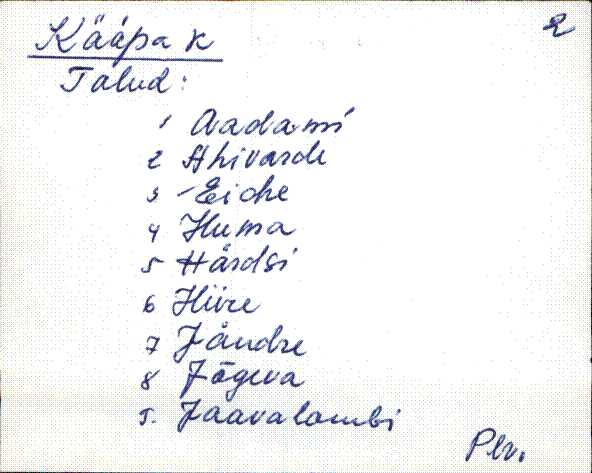 2
Kääpa k
Talud:
1 Aadami
2 Ahivarde
3 Eiche
4 Huma
5 Härdsi
6 Hiire
7 Jändre
8 Jõgeva
9. Jaavalambi
Plv.